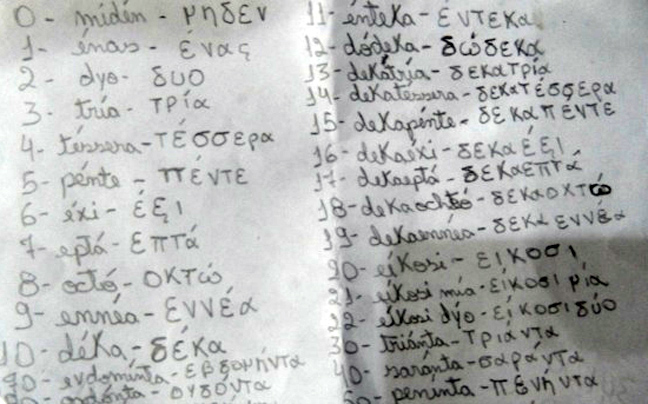 0- midén - μηδεν
1- énas - ένας
2- dyo - δυο
3- tría - τρία
4- téssera - τέσσερα
5- pénte - πέντε
6- éxi - έξι
7- eptá - επτά
8- octó - οκτώ
9- ennéa - εννέα
10- déka - δέκα
70- evdomínta - εβδομήντα
ογδόντα
11- énteka - έντεκα
12- dódeka - δώδεκα
13- dekatría - δεκατρία
14- dekatessera - δεκατέσσερα
15- dekapénte - δεκαπέντε
16- dekaéxi - δεκαέξι
17- dekaeptá - δεκαεπτά
18- dekaochtó - δεκαοχτώ
19- dekaennéa - δεκαεννέα
20- eíkosi - εικοσι
21- eíkosi mia - είκοσι μία
22- eíkosi dýo - είκοσι δύο
30- triánta - τριάντα
40- saránta - σαράντα
50- penínta - πενήντα